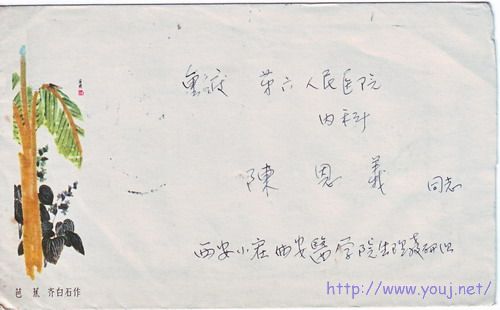 重庆 第六人民医院
内科
陳恩義 同志
西安小寨西安醫学院生理教研组
芭蕉 齐白石作
http://www.youj.net/